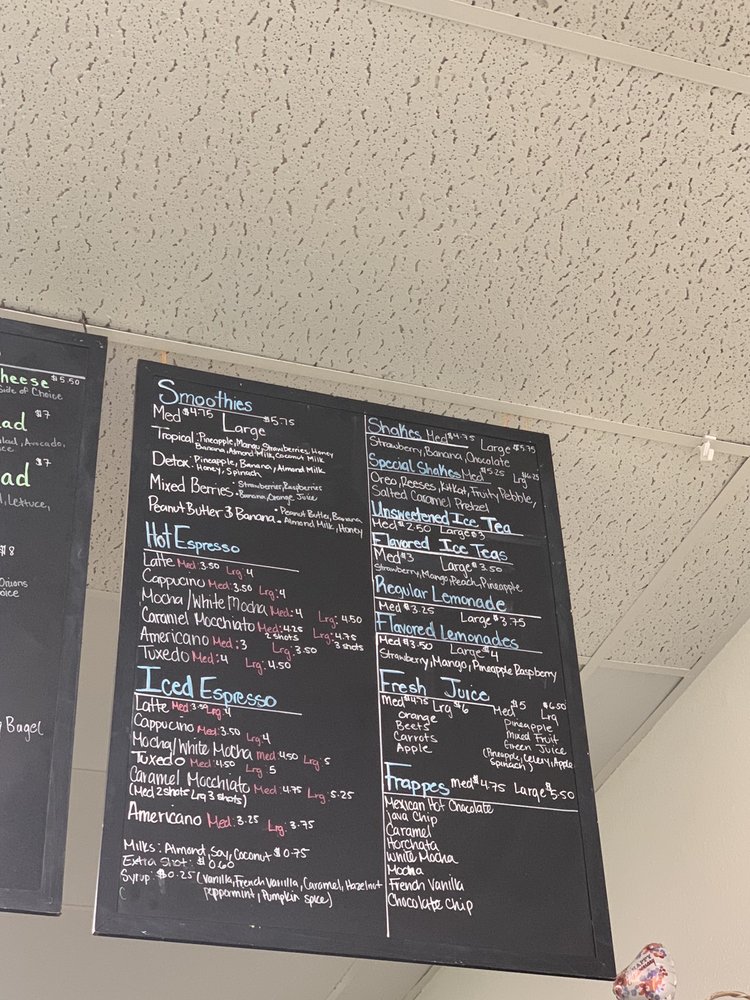 heese $5.50
Side of Choice
$7
lad
lad, Avocado,
$7
ad
, Lettuce,
$8
Onions
y Bagel
Smoothies
Med $4.75 Large $5.75
Tropical: Pineapple, Mango, Strawberries, Honey
Banana, Almond Milk, Coconut Milk
Detox: Pineapple, Banana, Almond Milk
Honey, Spinach
Mixed Berries: Strawberries, Raspberries
Banana, Orange Juice
Peanut Butter & Banana: Peanut Butter, Banana
Almond Milk, Honey
Hot Espresso
Latte Med: 3.50 Lrg: 4
Cappucino Med: 3.50 Lrg: 4
Mocha/White Mocha Med: 4 Lrg: 4.50
Caramel Macchiato Med: 4.25 Lrg: 4.75
2 shots 3 shots
Americano Med: 3 Lrg: 3.50
Tuxedo Med: 4 Lrg: 4.50
Iced Espresso
Latte Med: 3.50 Lrg: 4
Cappucino Med: 3.50 Lrg: 4
Mocha/White Mocha Med: 4.50 Lrg: 5
Tuxedo Med: 4.50 Lrg: 5
Caramel Macchiato Med: 4.75 Lrg: 5.25
(Med 2 shots Lrg 3 shots)
Americano Med: 3.25 Lrg: 3.75
Milks: Almond, Soy, Coconut $0.75
Extra Shot: $0.60
Syrup: $0.25 (Vanilla, French Vanilla, Caramel, Hazelnut
peppermint, Pumpkin spice)
Shakes Med $4.75 Large $5.75
Strawberry, Banana, Chocolate
Special Shakes Med $5.25 Lrg $6.25
Oreo, Reeses, KitKat, Fruity Pebble,
Salted Caramel Pretzel
Unsweetened Ice Tea
Med $2.50 Large $3
Flavored Ice Teas
Med $3 Large $3.50
Strawberry, Mango, Peach, Pineapple
Regular Lemonade
Med $3.25 Large $3.75
Flavored Lemonades
Med $3.50 Large $4
Strawberry, Mango, Pineapple Raspberry
Fresh Juice
Med $4.75 Lrg $6
Orange
Beets
Carrots
Apple
Med $5 Lrg $6.50
Pineapple
Mixed Fruit
Green Juice
(Pineapple, Celery, Apple
Spinach)
Frappes Med $4.75 Large $5.50
Mexican Hot Chocolate
Java Chip
Caramel
Horchata
White Mocha
Mocha
French Vanilla
Chocolate Chip